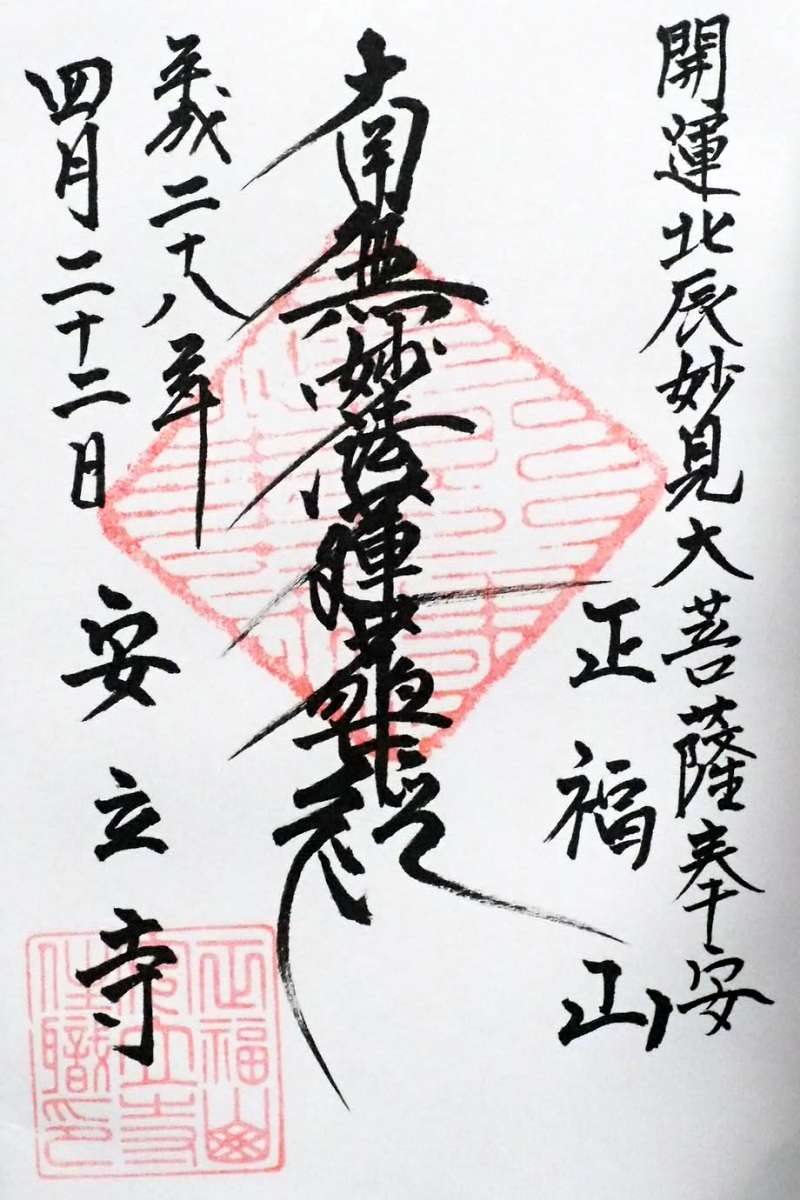 開運北辰妙見大菩薩奉安
正福山
南無妙法蓮華経
平成二十八年
四月二十二日
安立寺
正福山
安立寺
住職印